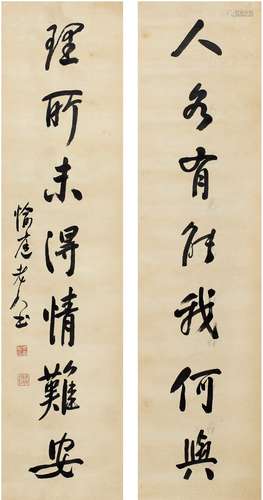 人各有能我何與
理所未得情難安
老人書